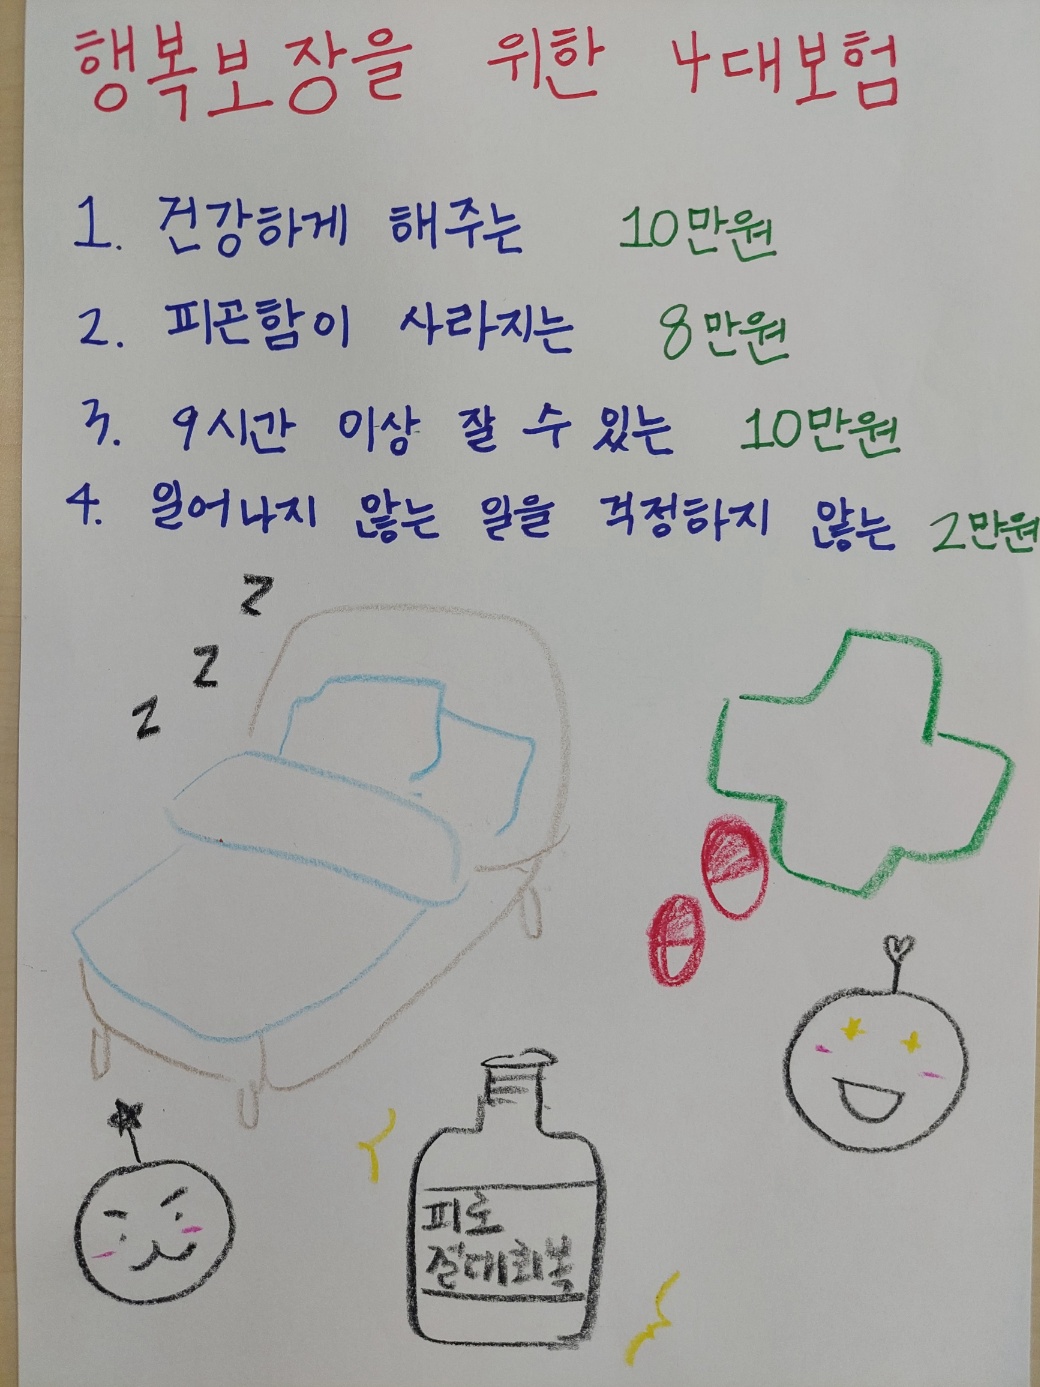 행복보장을 위한 4대보험
1. 건강하게 해주는 10만원
2. 피곤함이 사라지는 8만원
3. 9시간 이상 잘 수 있는 10만원
4. 일어나지 않는 일을 걱정하지 않는 2만원
z
z
z
피로
절대회복